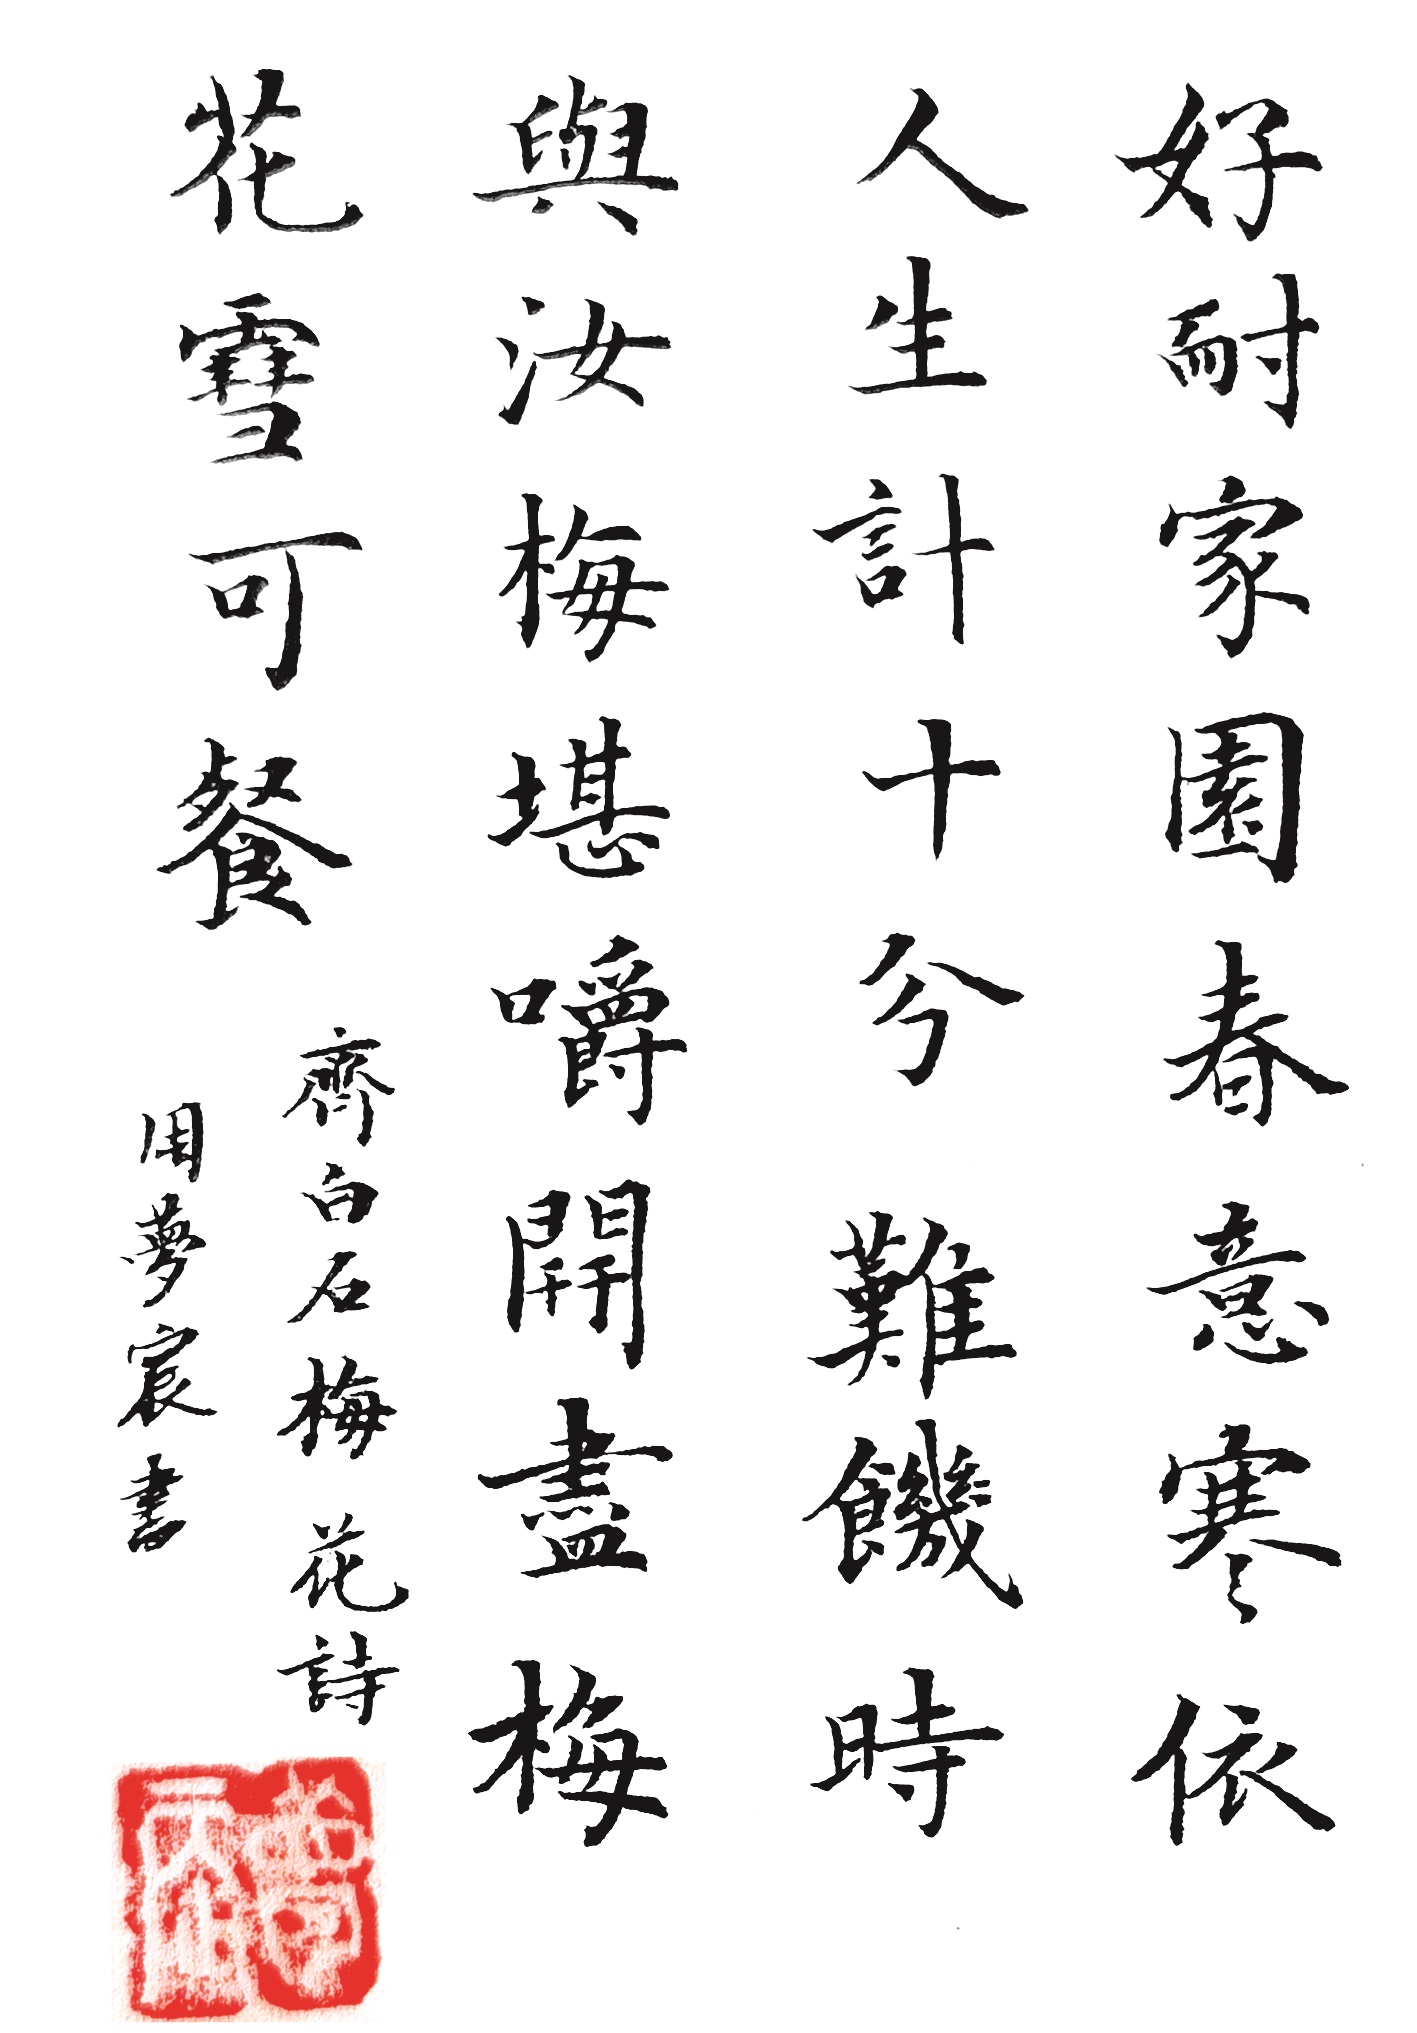 好耐家園春意寒依
人生計十兮難饑時
與汝梅堪嚼開盡梅
花雪可餐
齊白石梅花詩
周夢宸書